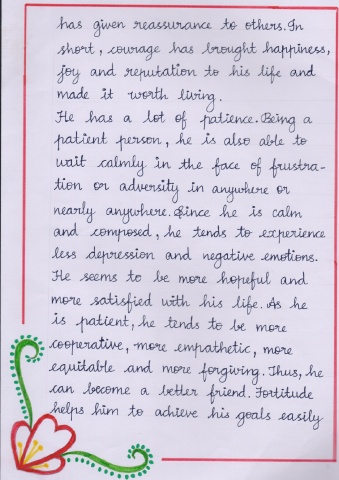 has given reassurance to others.In
short, courage has brought happiness,
joy and reputation to his life and
made it worth living.
He has a lot of patience.Being a
patient person, he is also able to
wait calmly in the face of frustra-
tion or adversity in anywhere or
nearly anywhere.Since he is calm
and composed, he tends to experience
less depression and negative emotions.
He seems to be more hopeful and
more satisfied with his life. As he
is patient, he tends to be more
cooperative, more empathetic, more
equitable and more forgiving. Thus, he
can become a better friend. Fortitude
helps him to achieve his goals easily